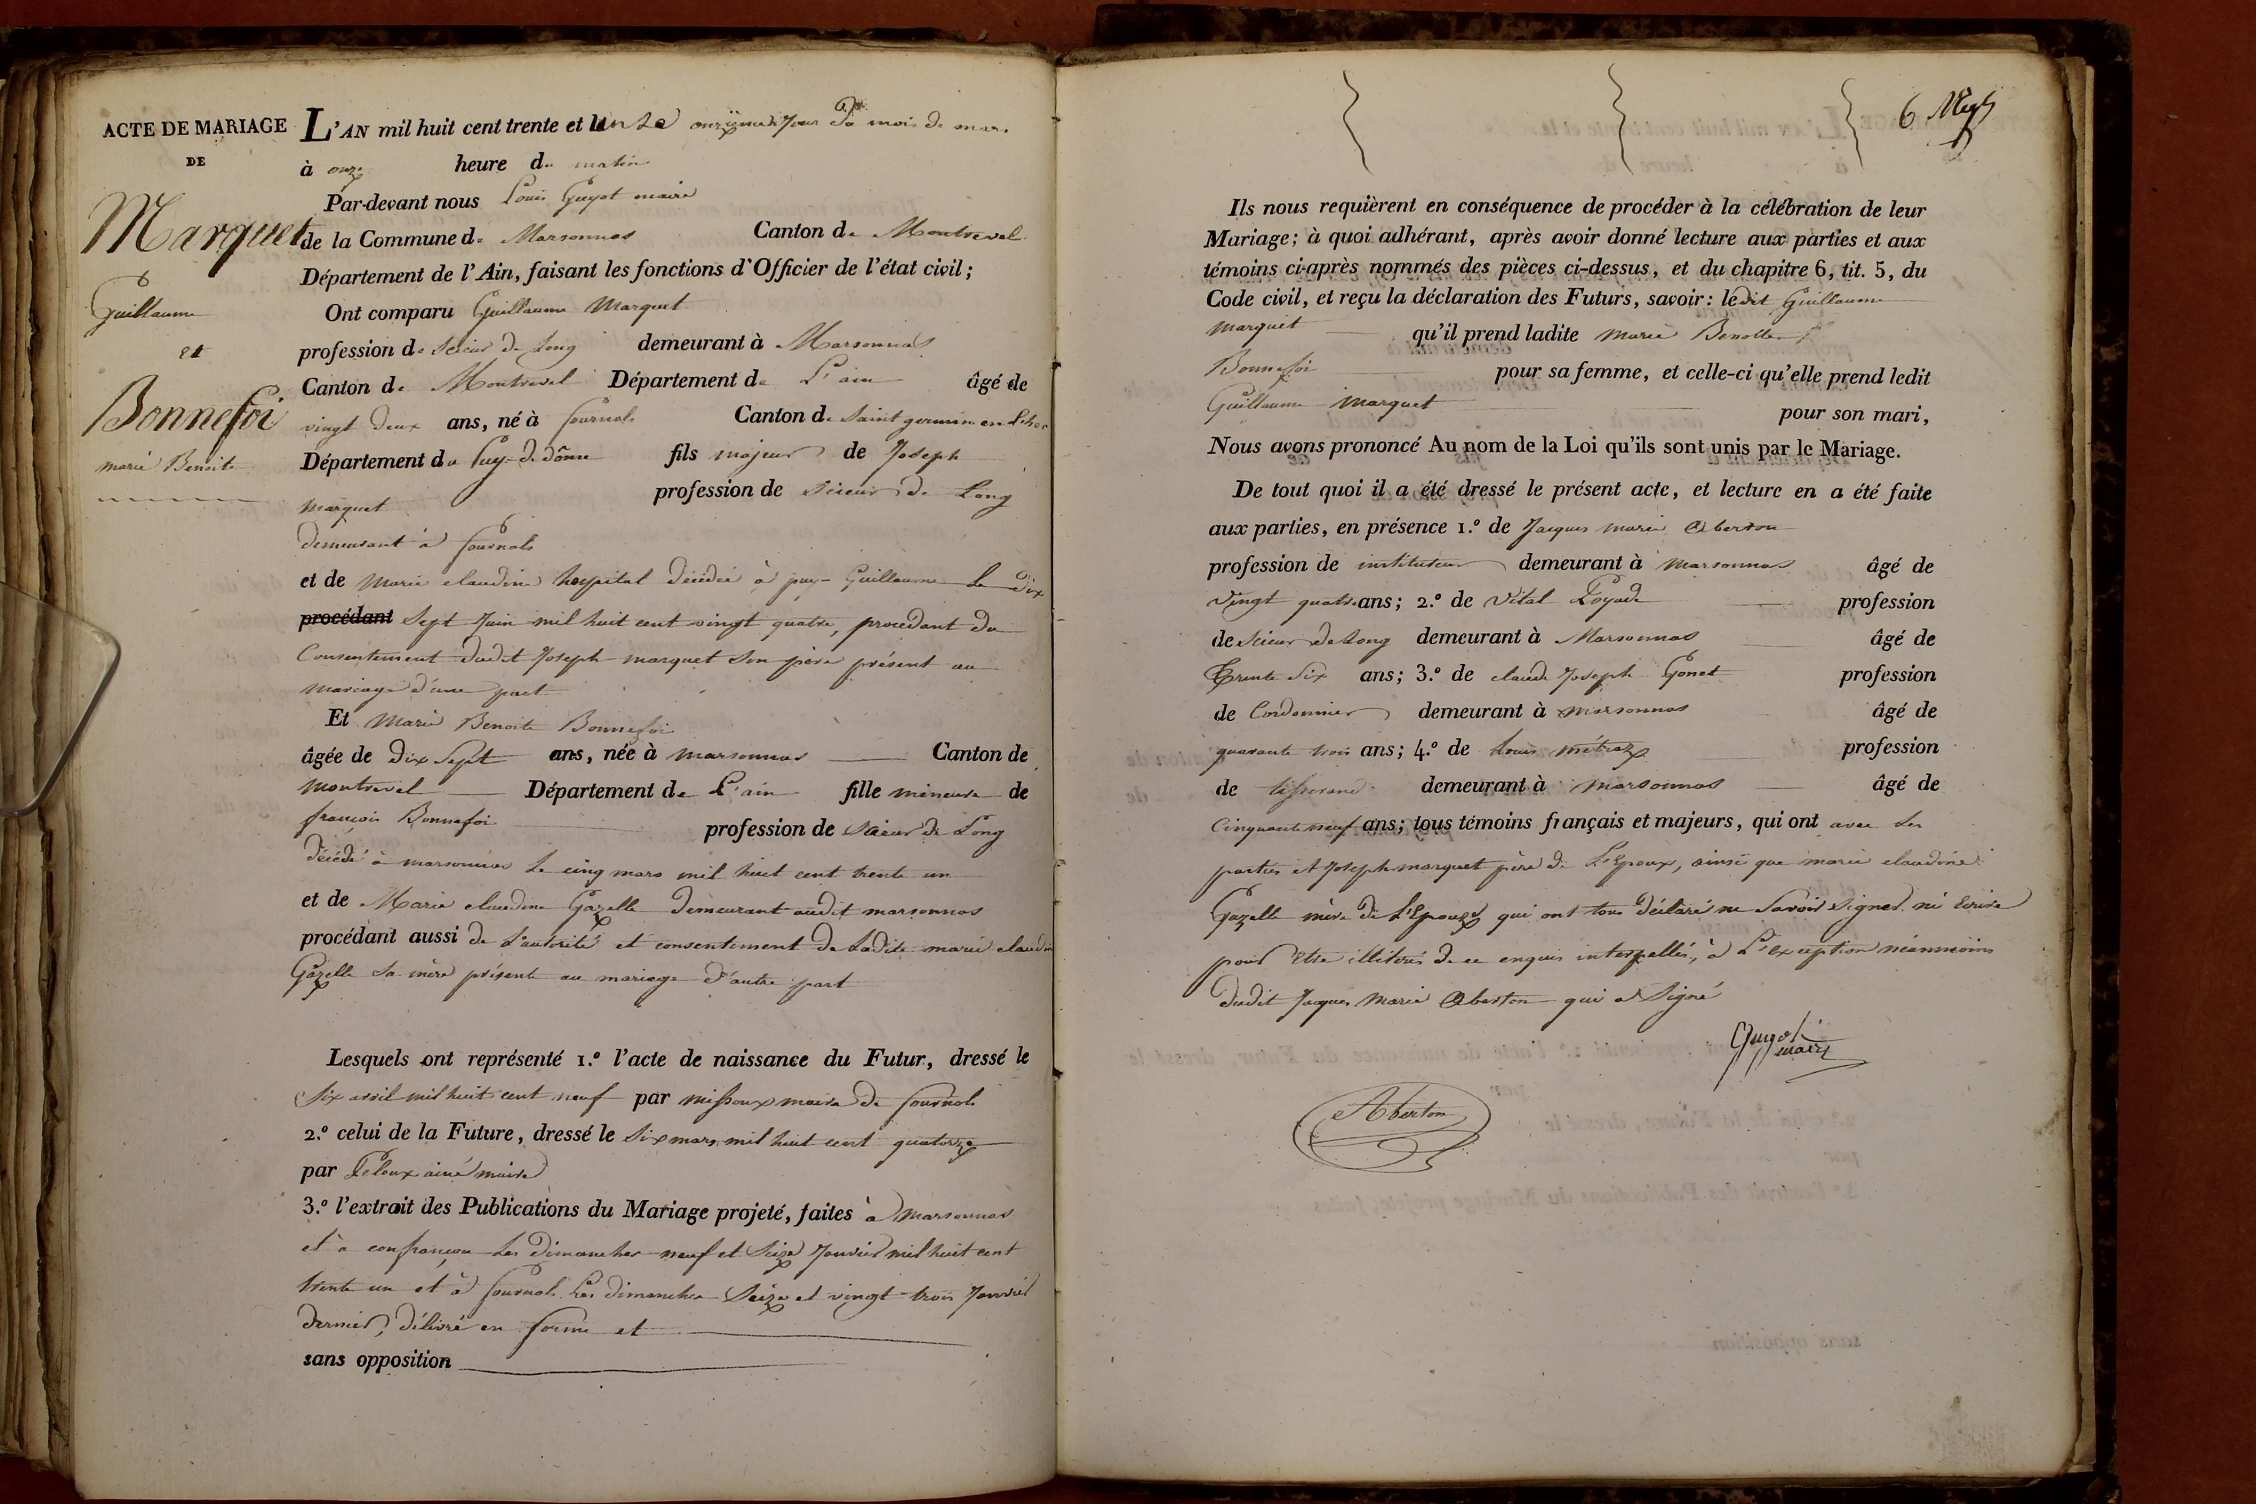 ACTE DE MARIAGE
DE
Marquet
Guillaume
et
Bonnefoi
marie Benoite
L'AN mil huit cent trente et un le onzieme Jour du mois de mars
à onze heure du matin
Par-devant nous Louis Guyot maire
de la Commune de Marsonnas Canton de Montrevel
Département de l'Ain, faisant les fonctions d'Officier de l'état civil;
Ont comparu Guillaume Marquet
profession de scieur de Long demeurant à Marsonnas
Canton de Montrevel Département de L'ain âgé de
vingt deux ans, né à fournols Canton de Saint germain
Département du Puy-de dôme fils majeur de Joseph
marquet profession de scieur de Long
demeurant à fournols
et de Marie claudine hospital décédée à puy-Guillaume Le dix
procédant Sept Juin mil huit cent vingt quatre, procedant du
Consentement dudit Joseph marquet Son père présent au
mariage d'une part
Et Marie Benoite Bonnefoi
âgée de dix Sept ans, née à marsonnas Canton de
Montrevel Département de L'ain fille mineure de
françois Bonnefoi profession de Scieur de Long
décédé à marsonnas Le cinq mars mil huit cent trente un
et de Marie claudine Gazelle demeurant audit marsonnas
procédant aussi de L'autorité et consentement de Ladite marie claudine
Gazelle Sa mère présente au mariage d'autre part
Lesquels ont représenté 1.º l'acte de naissance du Futur, dressé le
Six avril mil huit cent neuf par missoux maire de fournols
2.º celui de la Future, dressé le Six mars mil huit cent quatorze
par Peloux ainé maire
3.º l'extrait des Publications du Mariage projeté, faites à Marsonnas
et à confrançon Les dimanches neuf et Seize Janvier mil huit cent
trente un et à fournols Les dimanches Seize et vingt-trois Janvier
dernier, délivré en forme et
sans opposition
6
Ils nous requièrent en conséquence de procéder à la célébration de leur
Mariage; à quoi adhérant, après avoir donné lecture aux parties et aux
témoins ci-après nommés des pièces ci-dessus, et du chapitre 6, tit. 5, du
Code civil, et reçu la déclaration des Futurs, savoir: ledit Guillaume
Marquet qu'il prend ladite Marie Benoite
Bonnefoi pour sa femme, et celle-ci qu'elle prend ledit
Guillaume Marquet pour son mari,
Nous avons prononcé Au nom de la Loi qu'ils sont unis par le Mariage.
De tout quoi il a été dressé le présent acte, et lecture en a été faite
aux parties, en présence 1.º de Jacques marie Aberton
profession de instituteur demeurant à Marsonnas âgé de
Vingt quatre ans; 2.º de Vital Poyade profession
de Scieur de Long demeurant à Marsonnas âgé de
Trente Six ans; 3.º de claude Joseph Gonet profession
de Cordonnier demeurant à Marsonnas âgé de
quarante trois ans; 4.º de Louis métraz profession
de tisserand demeurant à Marsonnas âgé de
Cinquante neuf ans; tous témoins français et majeurs, qui ont avec Les
parties et Joseph marquet père de L'Epoux, ainsi que marie claudine
Gazelle mère de L'Epouse qui ont tous déclaré ne Savoir Signer ni Ecrire
pour Etre illiterés de ce enquis interpellés, à L'exception néanmoins
dudit Jaques Marie Aberton qui a Signé
Guyot
maire
Aberton